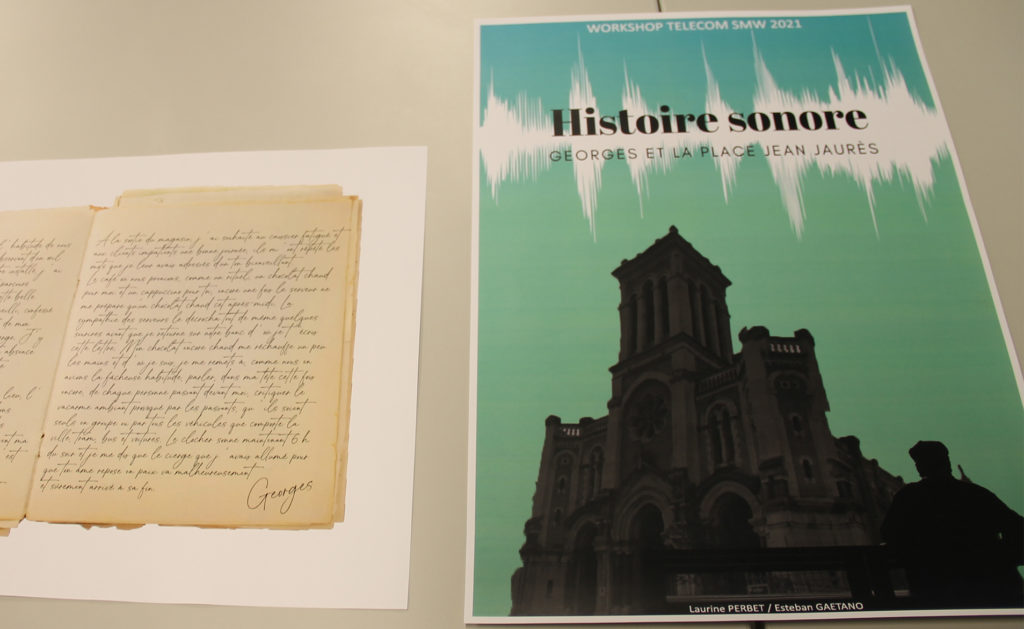 l' habitude de nous
observant d'un œil
installé, j' ai
parcouru
belle
confessé
de mon
J
absence
lieu, l'
ont ma
est
A la sortie du magasin, j' ai souhaité au caissier fatigué et
aux clients impatients une bonne journée, ils m' ont répété les
mots que je leur avais adressés d'un ton bienveillant.
Le café où nous prenions, comme un rituel, un chocolat chaud
pour moi et un cappuccino pour toi, encore une fois le serveur ne
me prépare qu'un chocolat chaud cet après-midi. La
sympathie des serveurs le décrocha tout de même quelques
sucres avant que je retourne sur notre banc d' où je t' écris
cette lettre. Mon chocolat encore chaud me réchauffe un peu
les mains et d' où je suis, je me remets à, comme nous en
avions la fâcheuse habitude, parler, dans ma tête cette fois
encore, de chaque personne passant devant moi, critiquer le
vacarme ambiant provoqué par les passants, qu' ils soient
seuls en groupe ou par tous les véhicules que comporte la
ville, tram, bus et voitures. Le clocher sonne maintenant 6 h
du soir et je me dis que le cierge que j' avais allumé pour
que ton âme repose en paix va malheureusement
et sûrement arrivé à sa fin.
Georges
WORKSHOP TELECOM SMW 2021
Histoire sonore
GEORGES ET LA PLACE JEAN JAURÈS
Laurine PERBET / Esteban GAETANO